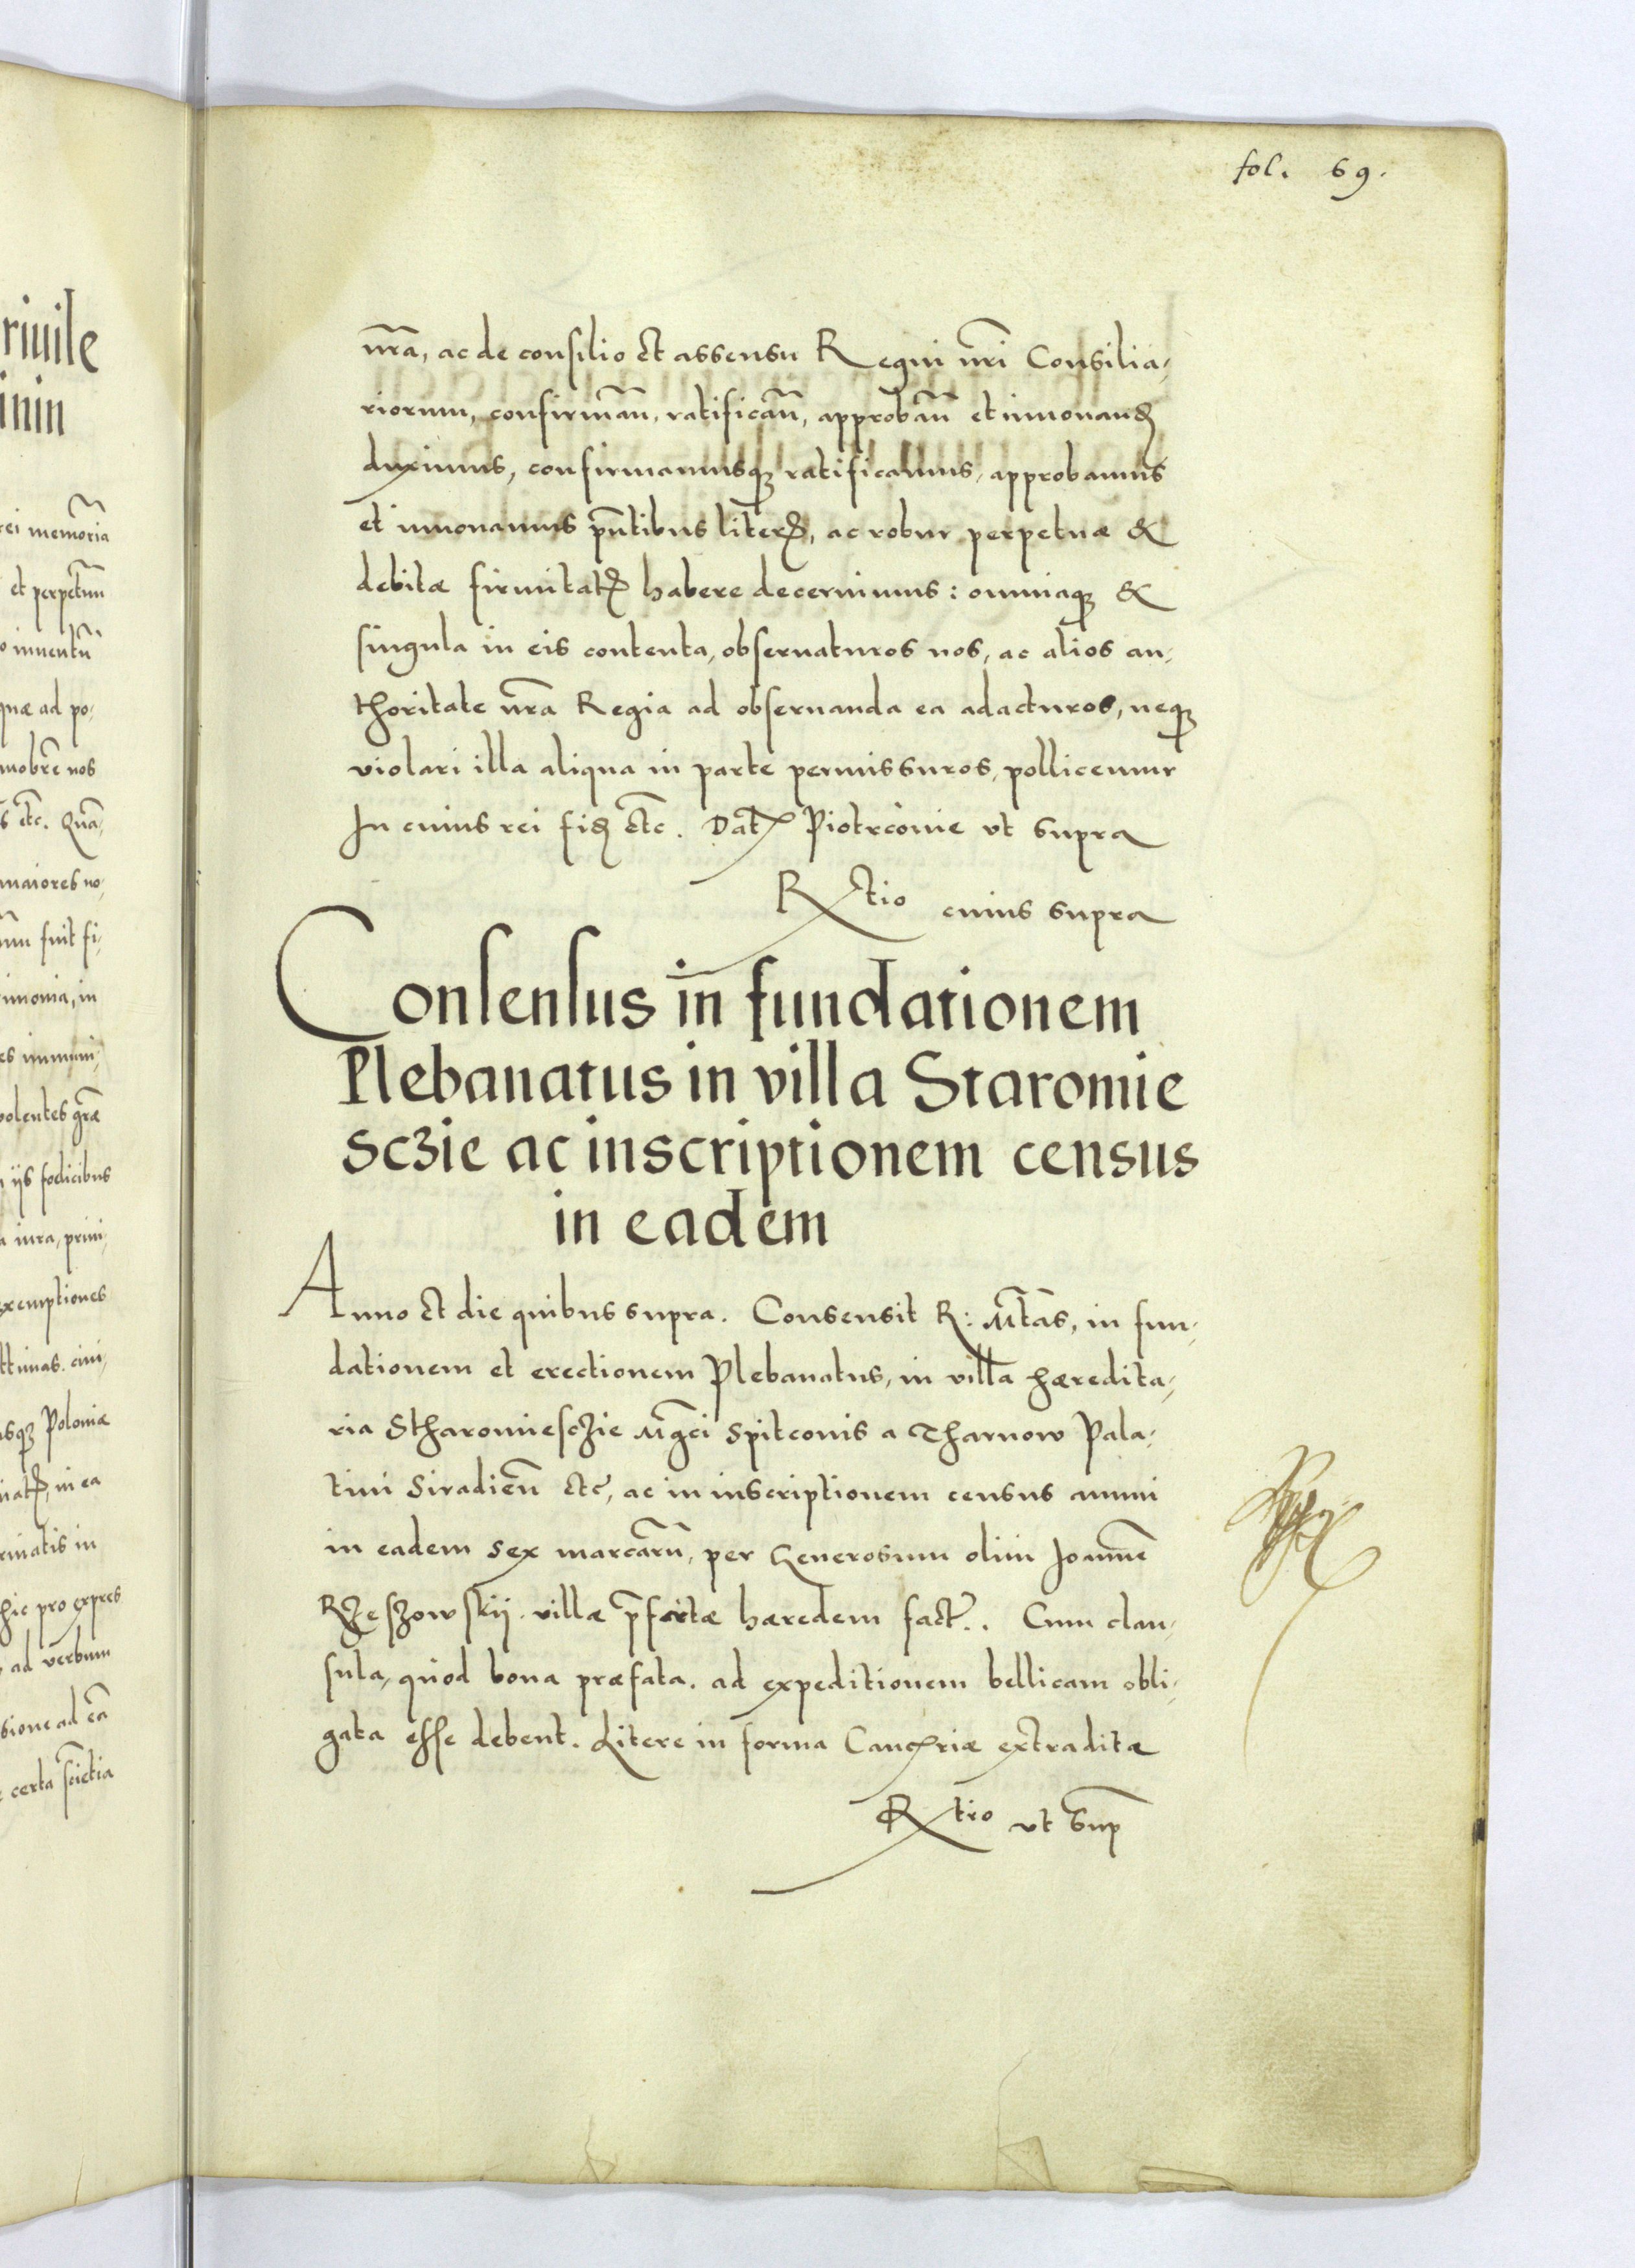 riuile
inin
rei memoria
et perpetuu
o inuentū
quæ ad po,
mobrē nos
etc. Quā,
maiores no,
fuit fi,
imonia, in
es immuni,
volentes grāē
iis fodicibus
a iura, priui,
exemptiones
ttimas. cui,
usq3 Poloniæ
in ea
rmatis in
hic pro expres
ad verbum
sione ad eā
certa sciētia
fol. 69.
nr̄a, ac de consilio et assensu Regni nr̄i Consilia,
riorum, confirmān, ratificān, approbān et innouand
duximus, confirmamusq3 ratificamus, approbamus
et innouamus pn̄tibus literꝭ, ac robur perpetuæ &
debitæ firmitatꝭ habere decernimus: omniaq3 &
singula in eis contenta, obseruaturos nos, ac alios au,
thoritate nr̄a Regia ad obseruanda ea adacturos, neq3
violari illa aliqua in parte permissuros, pollicemur
In cuius rei fid etc. Datꝭ Piotrcouie vt supra
Rtio cuius supra
Consensus in fundationem
Plebanatus in villa Staromie
sczie ac inscriptionem census
in eadem
Anno et die quibus supra. Consensit R: Mtās, in fun,
dationem et erectionem Plebanatus, in villa hæredita,
ria Stharomiesczie Mḡci Spitconis a Tharnow Pala,
tini Siradień etc, ac in inscriptionem census annui
in eadem sex marcarū, per Generosum olim Joannē
Rzeszowskij villæ p̄fatæ hæredem fact.. Cum clau,
sula, quod bona præfata. ad expeditionem bellicam obli,
gata esse debent. Litere in forma Cancꝭriæ extraditæ
Rtio vt sup